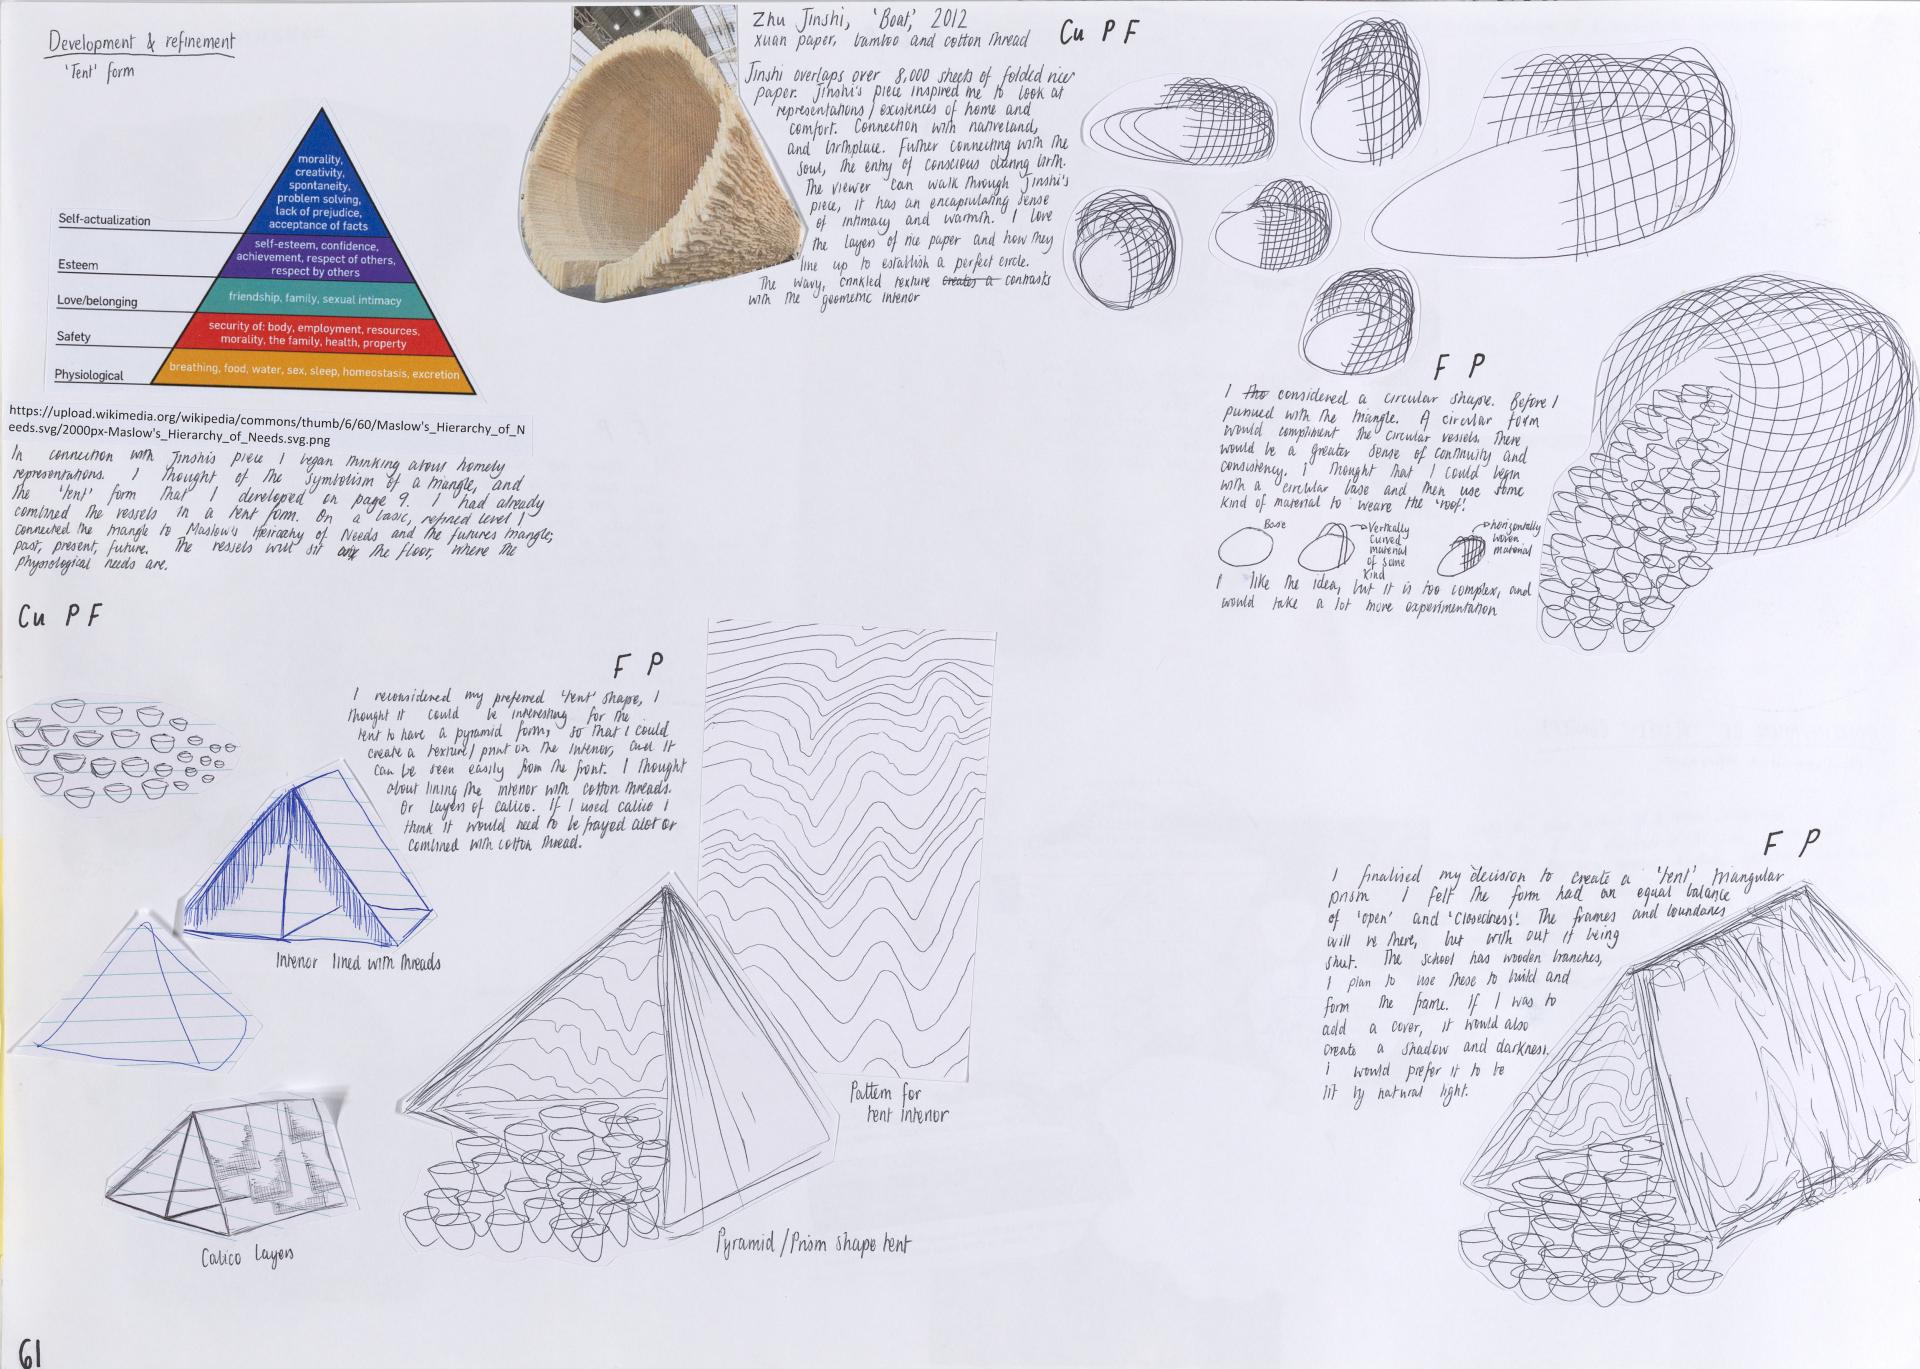 Development & refinement
'Tent' form
morality,
creativity,
spontaneity,
problem solving,
lack of prejudice,
acceptance of facts
Self-actualization
self-esteem, confidence,
achievement, respect of others,
respect by others
Esteem
friendship, family, sexual intimacy
Love/belonging
security of: body, employment, resources,
morality, the family, health, property
Safety
breathing, food, water, sex, sleep, homeostasis, excretion
Physiological
https://upload.wikimedia.org/wikipedia/commons/thumb/6/60/Maslow's_Hierarchy_of_N
eeds.svg/2000px-Maslow's_Hierarchy_of_Needs.svg.png
In connection with Jinshi's piece I began thinking about homely
representations. I thought of the symbolism of a triangle, and
the 'tent' form that I developed on page 9. I had already
combined the vessels in a tent form. On a basic, refined level I
connected the triangle to Maslow's Heirachy of Needs and the futures triangle;
past, present, future. The vessels will sit on the floor, where the
physiological needs are.
Cu P F
Zhu Jinshi, 'Boat', 2012
Xuan paper, bamboo and cotton thread
Cu P F
Jinshi overlaps over 8,000 sheets of folded rice
paper. Jinshi's piece inspired me to look at
representations / existences of home and
comfort. Connection with nativeland,
and birthplace. Further connecting with the
soul, the entry of conscious during birth.
The viewer can walk through Jinshi's
piece, it has an encapsulating sense
of intimacy and warmth. I love
the layers of rice paper and how they
line up to establish a perfect circle.
The wavy, crinkled texture creates a contrasts
with the geometric interior
F P
I tho considered a circular shape. Before I
pursued with the triangle. A circular form
would compliment the circular vessels. There
would be a greater sense of continuity and
consistency. I thought that I could begin
with a circular base and then use some
kind of material to 'weave the 'roof'.
Base
Vertically
curved
material
of some
kind
horizontally
woven
material
I like the idea, but it is too complex, and
would take a lot more experimentation
F P
I reconsidered my preferred 'tent' shape, I
thought it could be interesting for the
tent to have a pyramid form, so that I could
create a texture / print on the interior, and it
can be seen easily from the front. I thought
about lining the interior with cotton threads.
Or layers of calico. If I used calico I
think it would need to be frayed alot or
combined with cotton thread.
Interior lined with threads
Calico layers
Pattern for
tent interior
Pyramid / Prism shape tent
F P
I finalised my decision to create a 'tent' triangular
prism I felt the form had an equal balance
of 'open' and 'closedness'. The frames and boundaries
will be there, but with out it being
shut. The school has wooden branches,
I plan to use these to build and
form the frame. If I was to
add a cover, it would also
create a shadow and darkness.
I would prefer it to be
lit by natural light.
61